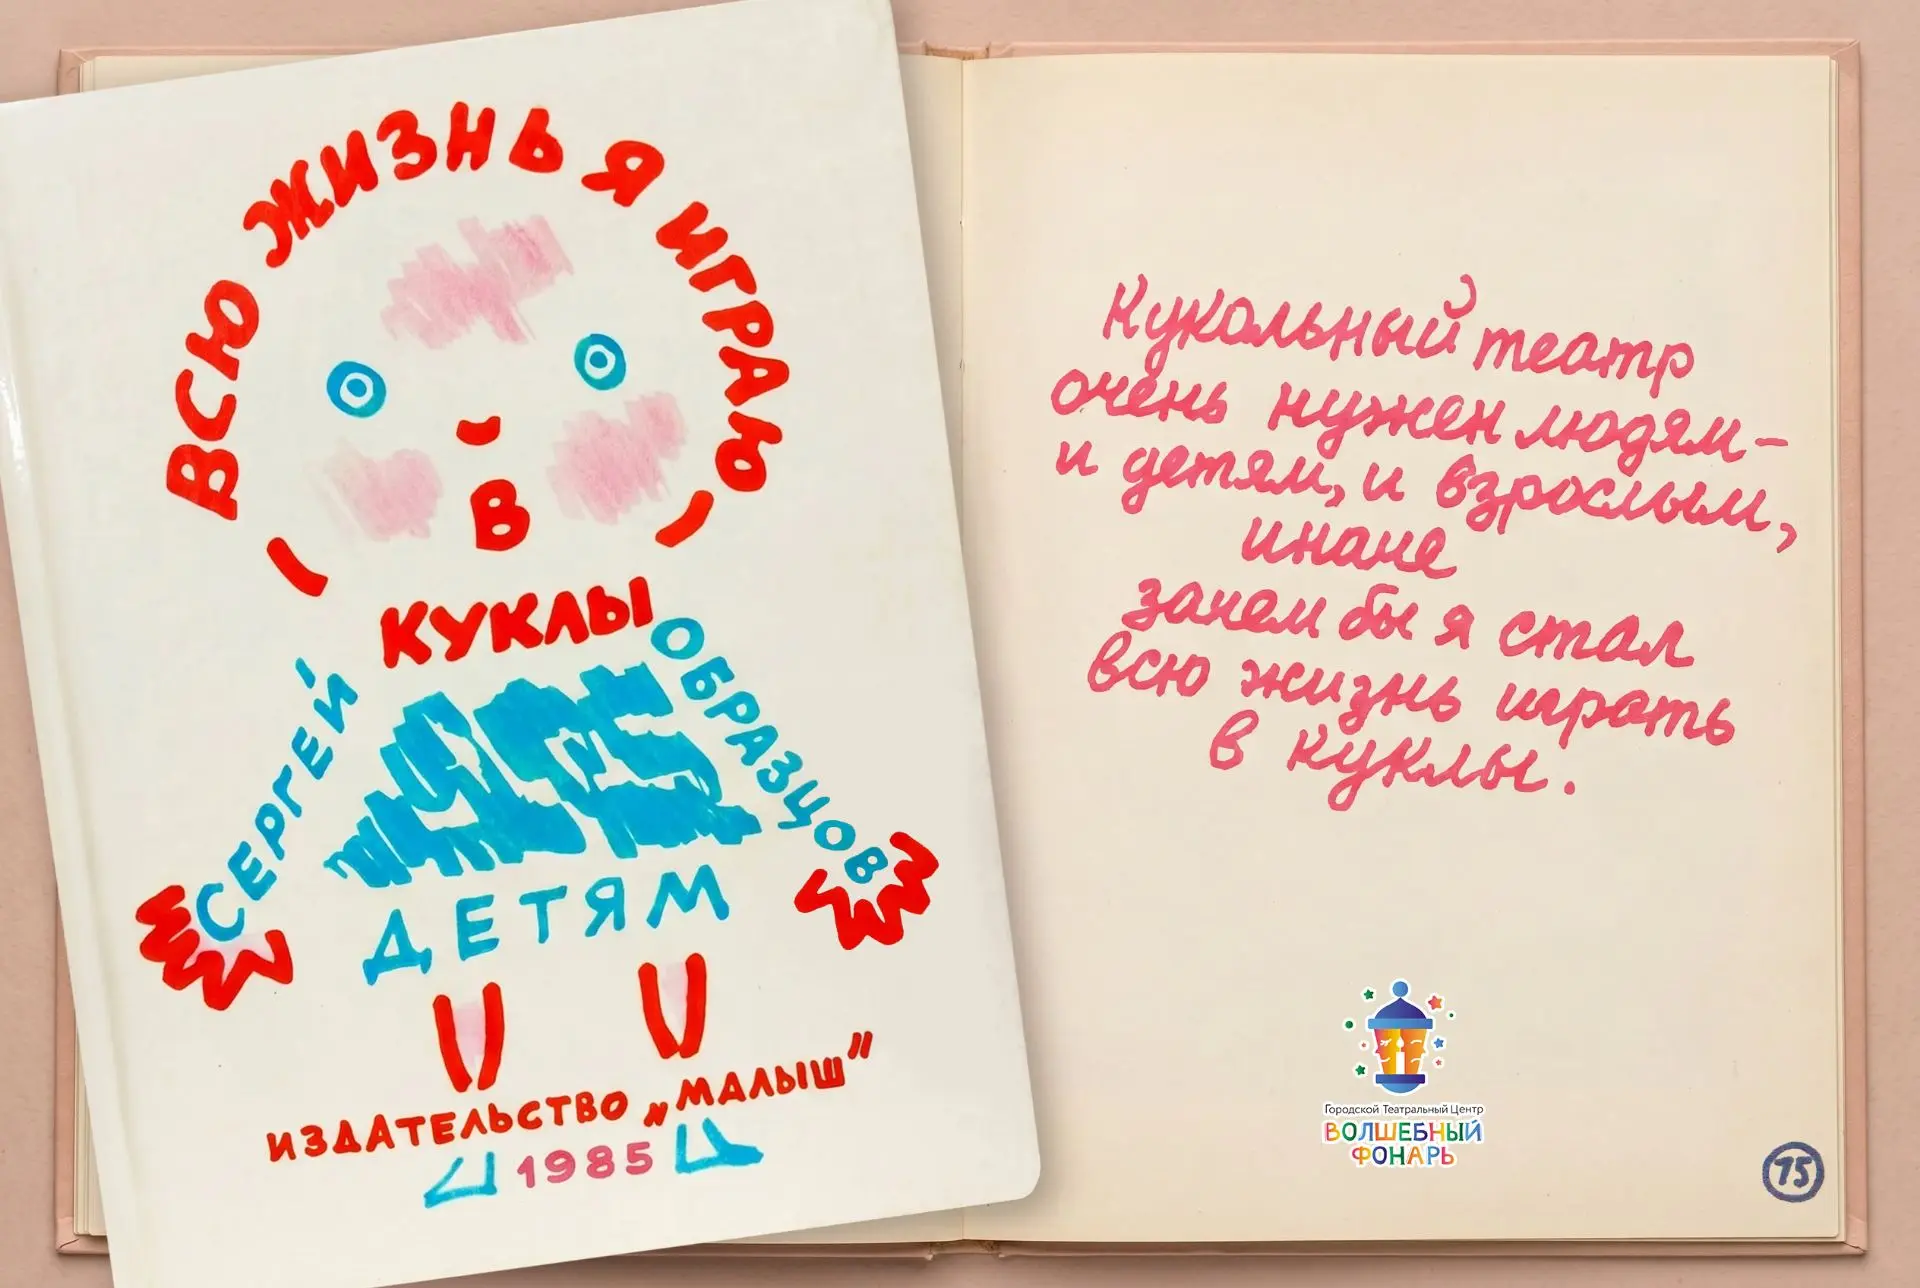 ВСЮ ЖИЗНЬ Я ИГРАЮ
В
КУКЛЫ
СЕРГЕЙ
ОБРАЗЦОВ
ДЕТЯМ
ИЗДАТЕЛЬСТВО „МАЛЫШ"
1985
Кукольный театр
очень нужен людям –
и детям, и взрослым,
иначе
зачем бы я стал
всю жизнь играть
в куклы.
Городской Театральный Центр
ВОЛШЕБНЫЙ
ФОНАРЬ
75